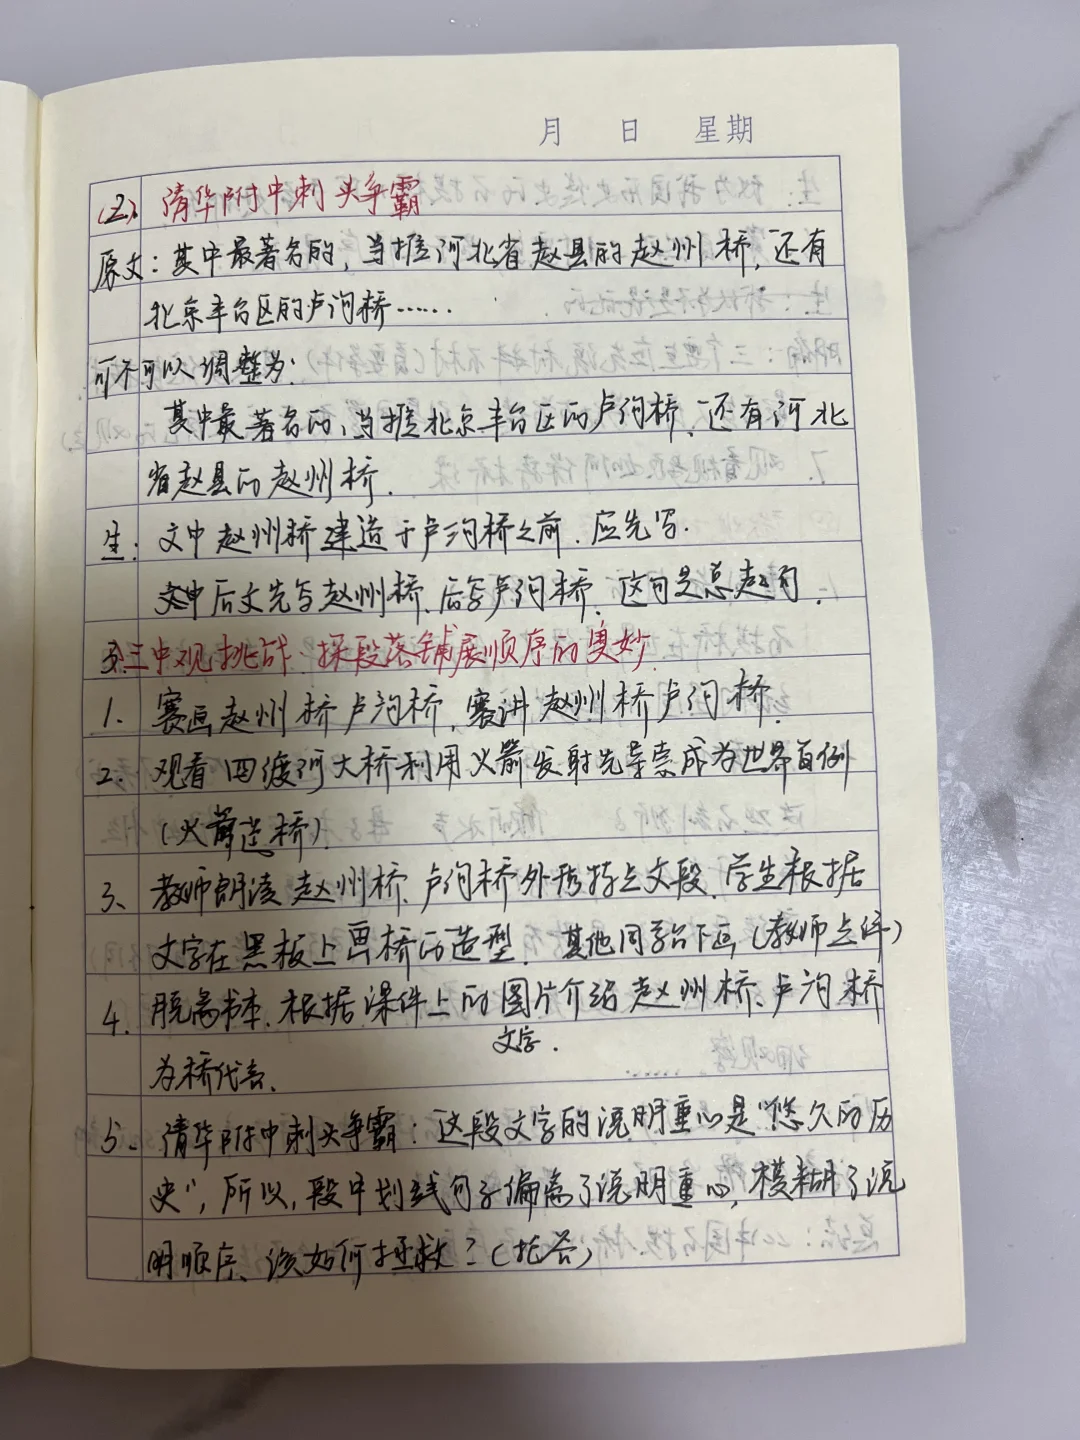 月 日 星期
(2)、清华附中刺头争霸
原文：其中最著名的，当推河北省赵县的赵州桥，还有
北京丰台区的卢沟桥……
可不可以调整为：
其中最著名的，当推北京丰台区的卢沟桥，还有河北
省赵县的赵州桥．
生：文中赵州桥建造于卢沟桥之前．应先写．
文中后文先写赵州桥．后写卢沟桥．这句是总起句．
三 中观挑战 探段落铺展顺序的奥妙
1、赛画赵州桥卢沟桥，赛讲赵州桥卢沟桥．
2、观看四渡河大桥利用火箭发射先导索成为世界首例
(火箭造桥)．
3、教师朗读赵州桥、卢沟桥外形特点文段．学生根据
文字在黑板上画桥的造型．其他同学台下画（教师点评）
4、脱离书本．根据课件上的图片介绍赵州桥、卢沟桥
文字．
为桥代言．
5、清华附中刺头争霸：这段文字的说明重心是“悠久的历
史”，所以，段中划线句子偏离了说明重心，模糊了说
明顺序、该如何拯救？（抢答）